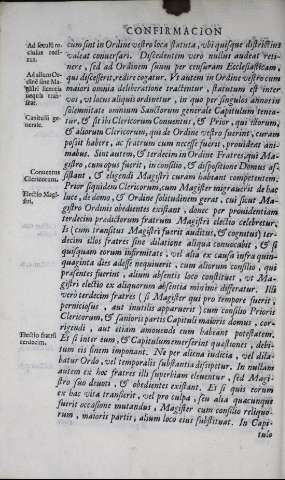 CONFIRMACION
Ad seculũ nullus redeat.
Ad aliũ Ordinẽ sine Magistri licencia nequis transeat.
Capituli generale.
Conuentus Clericorum.
Electio Magistri.
Electio fratrũ terdecim.
cum sint in Ordine vestro loca statuta, vbi quisque districtius
valeat conuersari. Discedentem verò nullus audeat reti-
nere, sed ad Ordinem suum per censuram Ecclesiasticam,
qui discesserit, redire cogatur. Vt autem in Ordine vestro cum
maiori omnia deliberatione tractentur, statutum est inter
vos, vt locus aliquis ordinetur, in quo per singulos annos in
solemnitate omnium Sanctorum generale Capitulum tenea-
tur, & sit ibi Clericorum Conuentus, & Prior, qui illorum,
& aliorum Clericorum, qui de Ordine vestro fuerint, curam
possit habere, ac fratrum cum necesse fuerit, prouideat ani-
mabus. Sint autem, & terdecim in Ordine Fratres, qui Ma-
gistro, cum opus fuerit, in consilio, & dispositione Domus as-
sistant, & eligendi Magistri curam habeant competentem.
Prior siquidem Clericorum, cum Magister migrauerit de hac
luce, domo, & Ordine solitudinem gerat, cui sicut Ma-
gistro Ordinis obedientes existant, donec per prouidentiam
terdecim prædictorum fratrum Magistri electio celebretur.
Is (cum transitus Magistri fuerit auditus, & cognitus) ter-
decim illos fratres sine dilatione aliqua conuocabit, & si
quisquam eorum infirmitate, vel alia ex causa infra quin-
quaginta dies adesse nequiuerit, cum aliorum consilio, qui
præsentes fuerint, alium absentis loco constituet, vt Ma-
gistri electio ex aliquorum absentia minimè differatur. Illi
verò terdecim fratres (si Magister qui pro tempore fuerit,
perniciosus, aut inutilis apparuerit) cum consilio Prioris
Clericorum, & sanioris partis Capituli maioris domus, cor-
rigendi, aut etiam amouendi eum habeant potestatem.
Et si inter eum, & Capitulum emerserint quæstiones, debi-
tum eis finem imponant. Ne per aliena iudicia, vel dila-
batur Ordo, vel temporalis substantia dissipetur. In nullam
autem ex hoc fratres illi superbiam eleuentur, sed Magi-
stro suo deuoti, & obedientes existant. Et si quis eorum
ex hac vita transierit, vel pro culpa, seu alia quacunque
fuerit occasione mutandus, Magister cum consilio reliquo-
rum, maioris partis, alium loco eius substituat. In Capi-
tulo